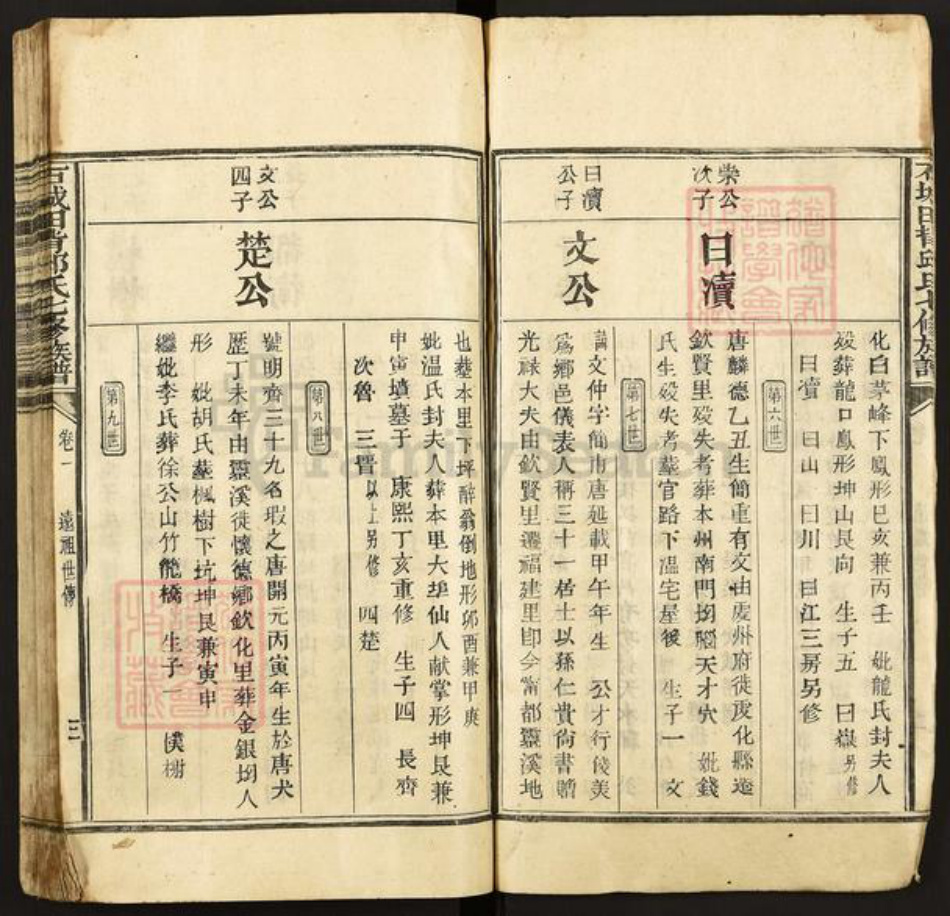 化白茅峰下鳳形巳亥兼丙壬 妣龍氏封夫人
歿葬龍口鳳形坤山艮向 生子五 曰嶽另修
曰瀆 曰山 曰川 曰江三房另修
第六世
崇公次子
曰瀆
唐麟德乙丑生簡重有文由虔州府徙虔化縣遷
欽賢里歿失考葬本州南門坳腦天才穴 妣錢
氏生歿失考葬官路下溫宅屋後 生子一 文
第七世
曰瀆公子
文公
諱文仲字簡甫唐延載甲午年生 公才行俊美
為鄉邑儀表人稱三十一居士以孫仁貴尚書贈
光祿大夫由欽賢里遷福建里即今甯都靈溪地
也葬本里下坪醉翁倒地形卯酉兼甲庚
妣溫氏封夫人葬本里大埠仙人献掌形坤艮兼
申寅墳墓于 康熙丁亥重修 生子四 長齊
次魯 三晋以上另修 四楚
第八世
文公四子
楚公
號明齊三十九名瑕之唐開元丙寅年生於唐犬
歷丁未年由靈溪徙懷德鄉欽化里葬金銀坳人
形 妣胡氏葬楓樹下坑坤艮兼寅申
繼妣李氏葬徐公山竹篼橋 生子一 僕榭
第九世
石城田背邱氏七修族譜
卷一
遠祖世傳
三